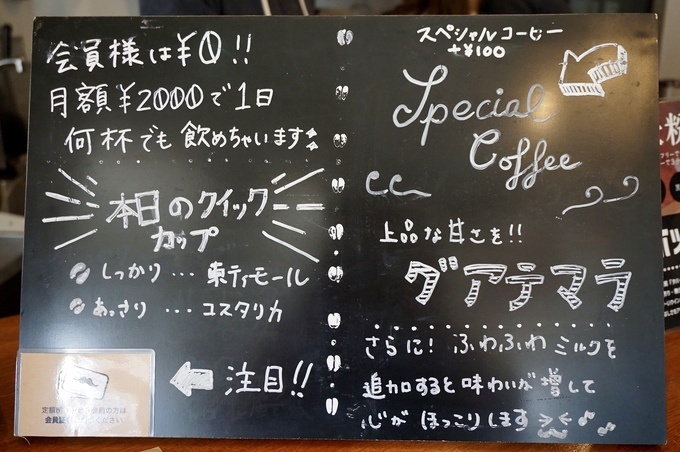 会員様は¥0!!
月額¥2000で1日
何杯でも飲めちゃいます
本日のクイック
カップ
しっかり…東ティモール
あっさり…コスタリカ
注目!!
会員証
ください
スペシャルコーヒー
+¥100
Special
Coffee
上品な甘さを!!
グアテマラ
さらに!ふわふわミルクを
追加すると味わいが増して
心がほっこりします